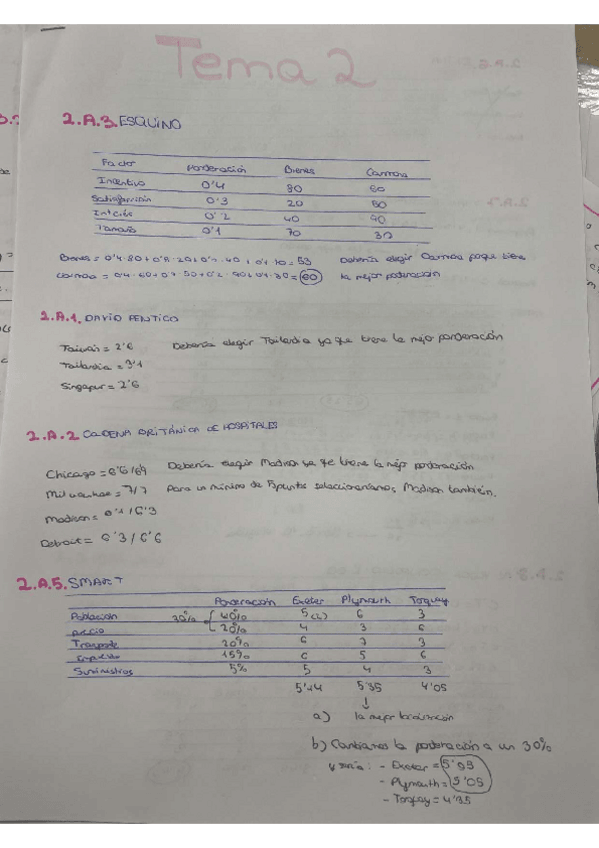 Tema 2
2.A.3. ESQUINO
Factor Ponderación Bienes Carmona
Incentivo 0'4 80 60
Satisfacción 0'3 20 50
Interés 0'2 40 90
Tamaño 0'1 70 30
Bienes = 0'4·80+0'3·20+0'2·40+0'1·70=53 Debería elegir Carmona porque tiene
Carmona = 0'4·60+0'3·50+0'2·90+0'1·30=60 la mejor ponderación
2.A.1. DAVID PENTICO
Taiwán = 2'6 Debería elegir Tailandia ya que tiene la mejor ponderación
Tailandia = 3'1
Singapur = 2'6
2.A.2 CADENA BRITÁNICA DE HOSPITALES
Chicago = 6'6/69 Debería elegir Madison ya que tiene la mejor ponderación
= 7/7 Para un mínimo de 5 puntos seleccionaríamos, Madison también.
Madison = /6'3
Detroit = 6'3/6'6
2.A.5. SMART
Ponderación Exeter Plymouth Torquay
Población 40% 5 6 3
Precio 20% 4 3 6
Transporte 20% 6 7 3
15% 6 5 6
Suministros 5% 5 4 3
5'35 4'05
↓
a) la mejor localización
b) Cambiamos la ponderación a un 30%
y sería: - Exeter =
- Plymouth = 5'05
- Torquay =